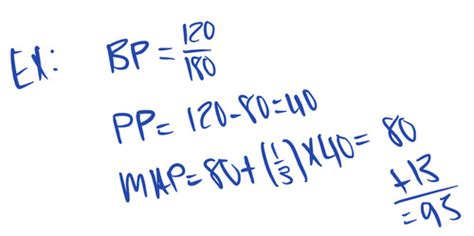 EX: BP = 120/180
PP = 120-80=40
MAP=80+(1/3)×40= 80
+13
=93